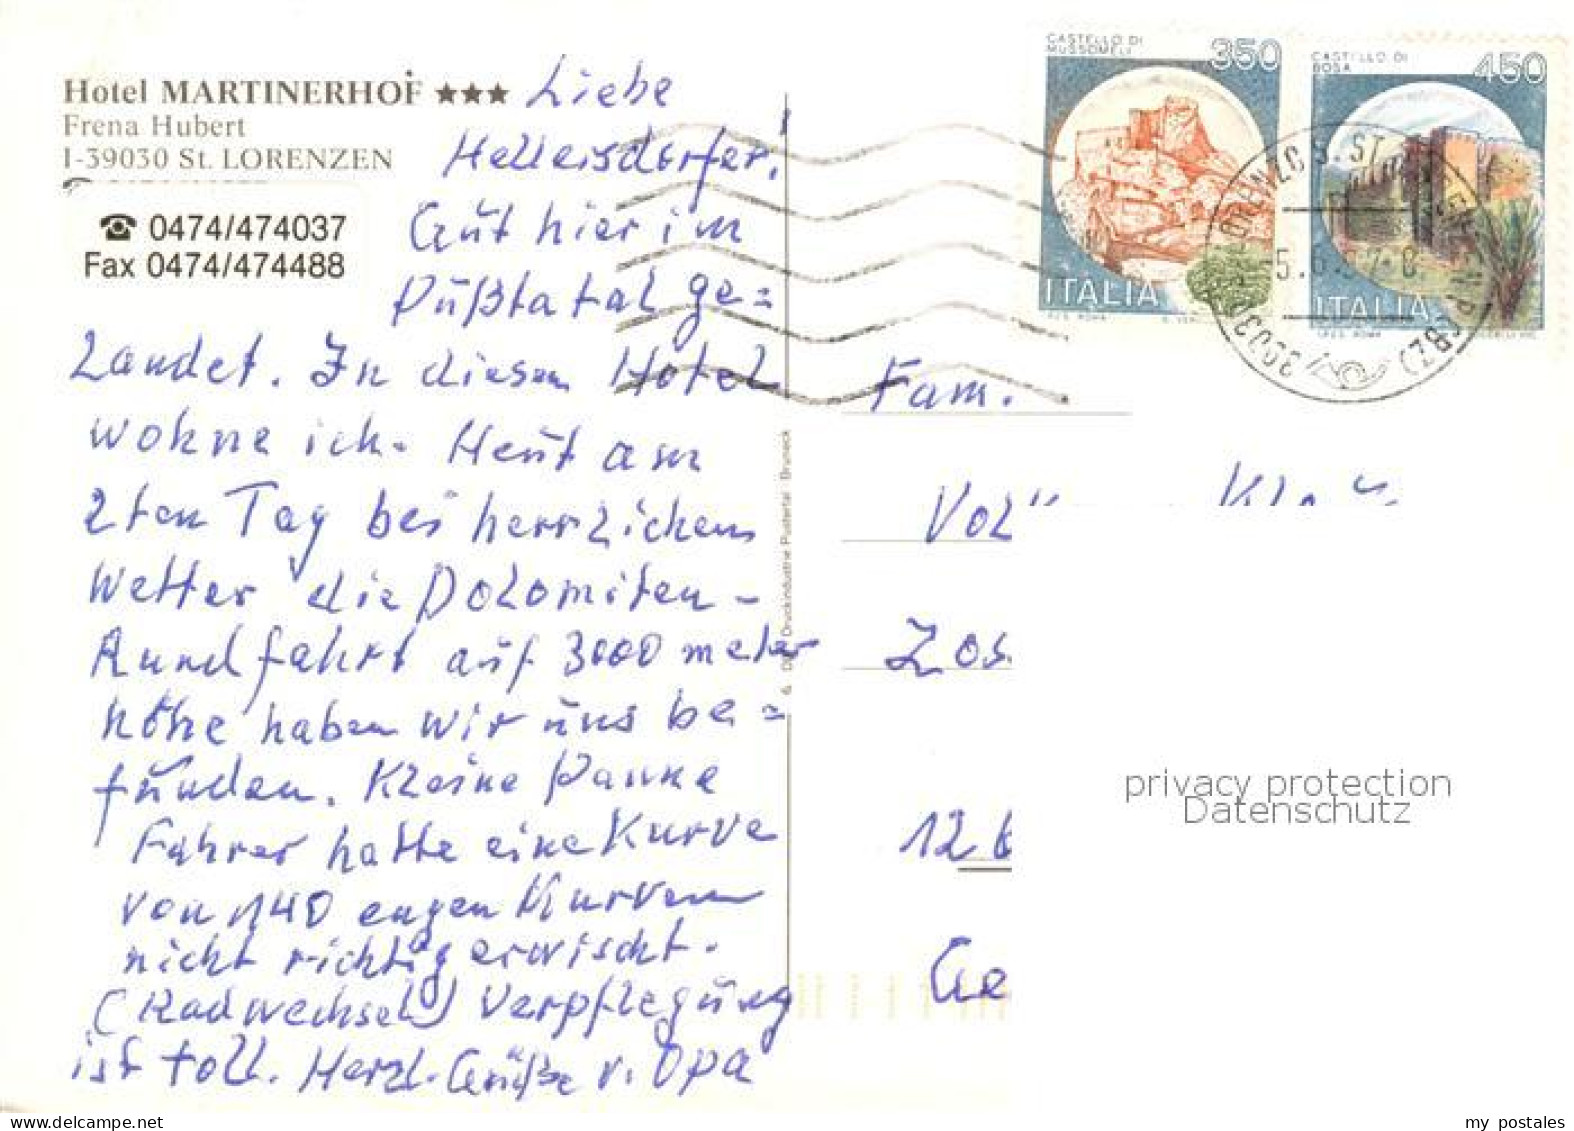 Hotel MARTINERHOF ★★★
Frena Hubert
I-39030 St. LORENZEN
☎ 0474/474037
Fax 0474/474488
Liebe
Hellersdorfer!
Gut hier im
Pußtatal ge=
landet. In diesem Hotel
wohne ich. Heut am
2ten Tag bei herrlichem
Wetter die Dolomiten-
Rundfahrt auf 3000 meter
höhe haben wir uns be=
funden. Kleine Panne
Fahrer hatte eine Kurve
von 140 engen Kurven
nicht richtig erwischt.
(Radwechsel) Verpflegung
ist toll. Herzl. Grüße v. Opa
6 Druckindustrie Pustertal Bruneck
CASTELLO DI
MUSSOMELI
350
ITALIA
CASTELLO DI
BOSA
450
ITALIA
Fam.
Zos
12 6
Ge
privacy protection
Datenschutz
my postales